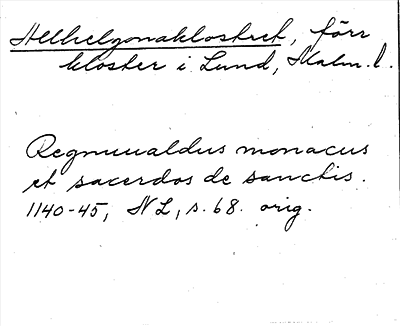 Allhelgonaklostret, förr
kloster i Lund, Malm. l.
Regnuualdus monacus
et sacerdos de sanctis.
1140-45, NL, s. 68. orig.